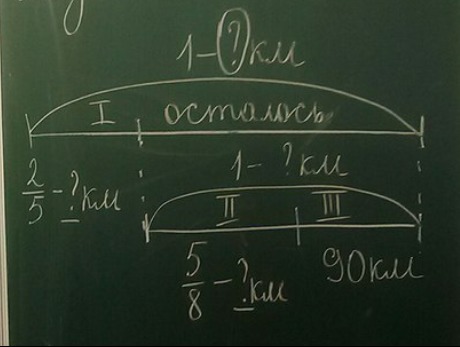 1 - ? км
I осталось
2/5 - ? км
1 - ? км
II III
5/8 - ? км
90 км